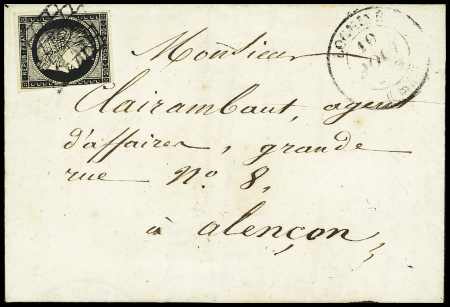 10
Monsieur
Clairambaut, agent
d'affaires, grande
rue No 8,
à alençon,